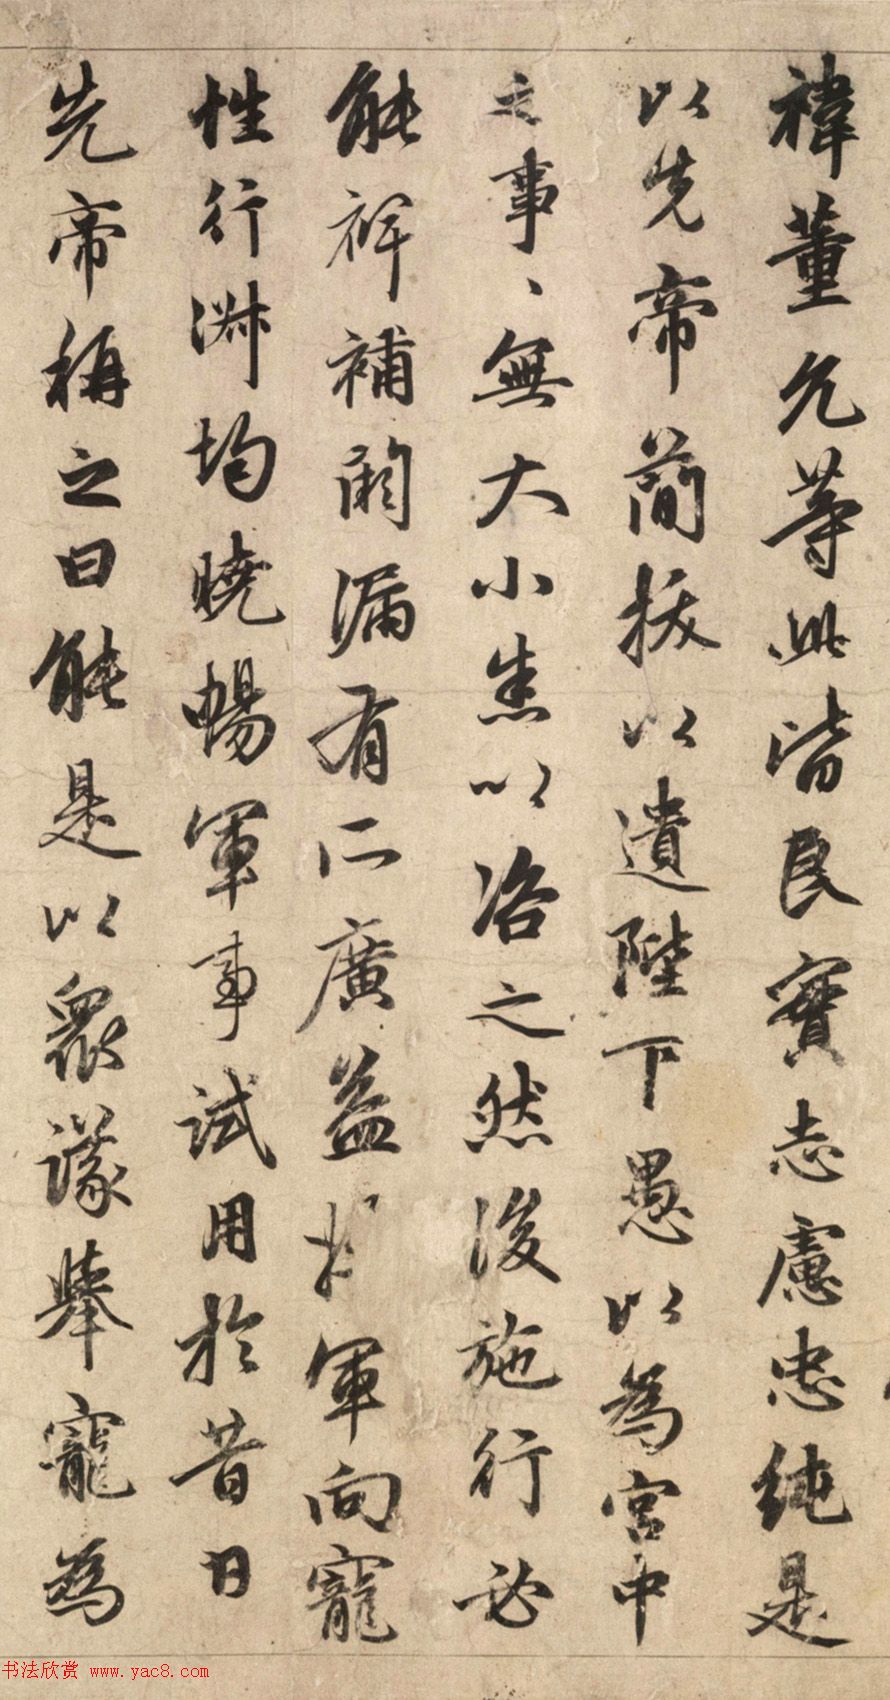 禕董允等此皆良實志慮忠純是
以先帝簡拔以遺陛下愚以為宮中
之事、無大小悉以咨之然後施行必
能裨補闕漏有所廣益將軍向寵
性行淑均曉暢軍事試用於昔日
先帝稱之曰能是以眾議舉寵為
书法欣赏 www.yac8.com